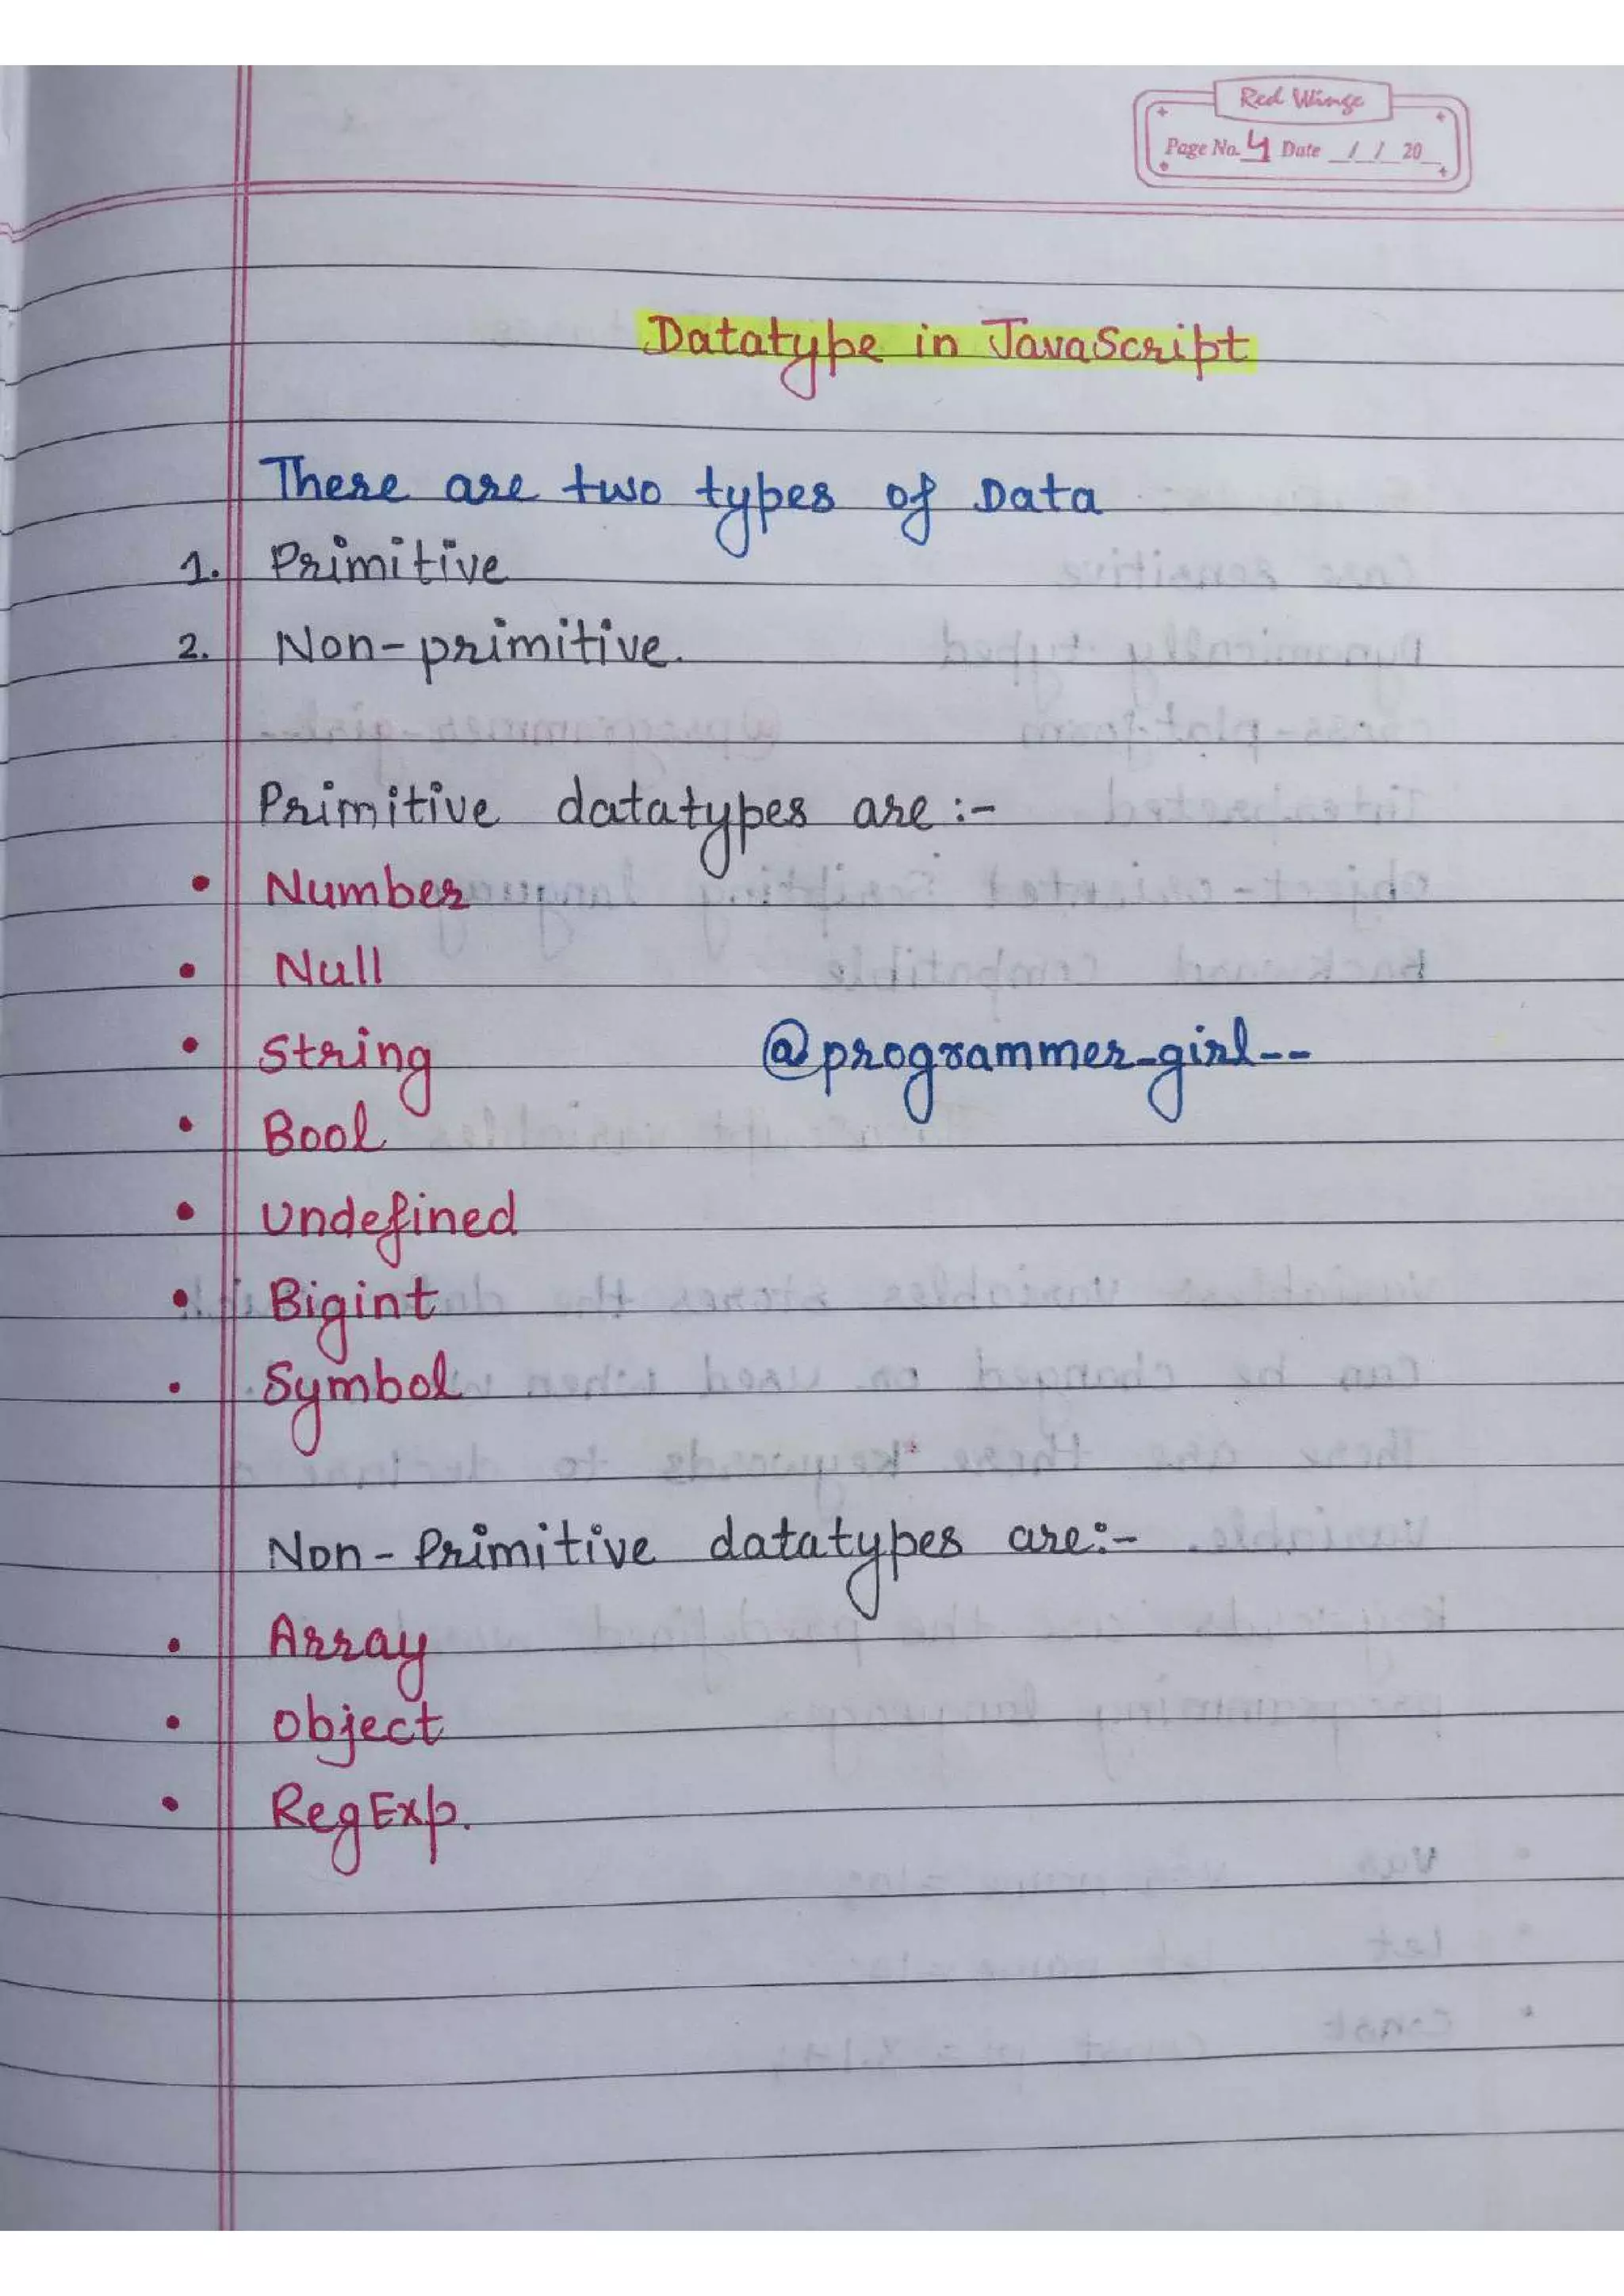 Red Winge
Page No. 4 Date _/_/ 20_
Datatype in JavaScript
There are two types of Data
1. Primitive
2. Non-primitive.
Primitive datatypes are :-
• Number
• Null
• String
@programmer_girl--
• Bool
• Undefined
• Bigint
• Symbol
Non-Primitive datatypes are:-
• Array
• Object
• RegExp.